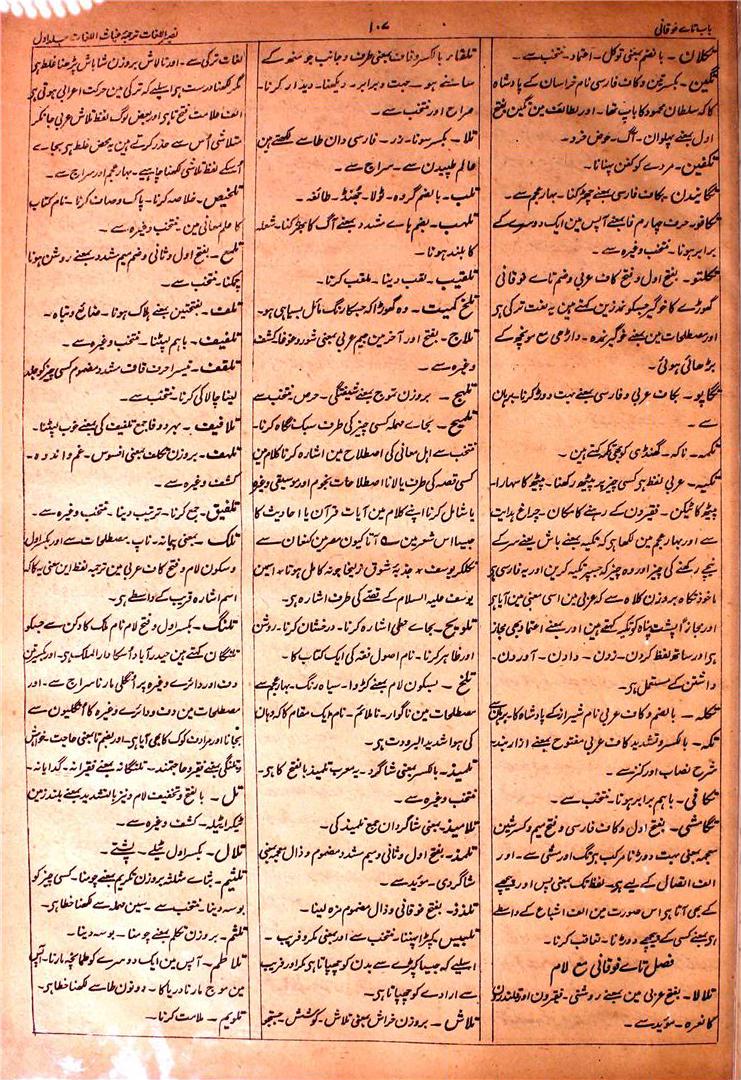 باب تاے فوقانی
۱۰۷
نصیر اللغات ترجمۂ غیاث اللغات جلد اول
تکلان۔ بالضم بمعنی توکل۔ اعتماد۔ منتخب سے۔
تکین۔ بکسرتین و کاف فارسی نام خراسان کے بادشاہ
کا کہ سلطان محمود کا باپ تھا۔ اور لطائف میں تگین بفتح
اول بمعنی پہلوان۔ آگ۔ حوض خرد۔
تکفین۔ مردے کو کفن پہنانا۔
برابر ہونا۔ منتخب وغیرہ سے۔
تکلتو۔ بفتح اول و فتح کاف عربی و ضم تاے فوقانی
گھوڑے کا خوگیر جسکو نمدزین کہتے ہین یہ لغت ترکی ہی
اور مصطلحات مین بمعنی خوگیرندہ۔ داڑھی مع مونچھ کے
بڑھائی ہوئی۔
تگاپو۔ بکاف عربی و فارسی بمعنی بہت دوڑ کرنا۔ برہان
سے۔
تکمہ۔ ناکہ۔ گھنڈی کو بھی تکمہ کہتے ہین۔
تکیہ۔ عربی لفظ ہر کسی چیز پر پیٹھ رکھنا۔ پیٹھ کا سہارا۔
پیٹھ کا ٹیکن۔ فقیرون کے رہنے کا مکان۔ چراغ ہدایت
سے اور بہار عجم مین لکھا ہی کہ تکیہ بمعنی بالش یعنی سر کے
نیچے رکھنے کی چیز اور وہ چیز کہ جسپر تکیہ کرین اور یہ فارسی ہی
ہی اور ساتھ لفظ کردن۔ زدن۔ دادن۔ آوردن۔
داشتن کے مستعمل ہی۔
تکلہ۔ بالضم و کاف عربی نام شیراز کے بادشاہ کا۔ برہان سے
تکہ۔ بالکسر و تشدید کاف عربی مفتوح بمعنی ازار بند
شرح نصاب اور کنز سے۔
تکافی۔ باہم برابر ہونا۔ منتخب سے۔
تگامشی۔ بفتح اول و کاف فارسی و فتح میم و کسر شین
معجمہ بمعنی بہت دوڑنا مرکب ہی تگ اور مشی سے۔ اور
الف اتصال کے لیے ہی۔ لفظ تک بمعنی پس اور پیچھے
کے بھی آتا ہی اس صورت مین الف اشباع کے واسطے
ہی بمعنی کسی کے پیچھے دوڑنا۔ تعاقب کرنا۔
فصل تاے فوقانی مع لام
تلالا۔ بفتح عربی مین بمعنی روشنی۔ فقیرون اور قلندرون
کا نعرہ۔ مؤید سے۔
تلقاء۔ بالکسر و قاف بمعنی طرف و جانب جو منھ کے
سامنے ہو۔ جہت و برابر۔ دیکھنا۔ دیدار کرنا۔
صراح اور منتخب سے۔
تلا۔ بکسر سونا۔ زر۔ فارسی دان طا سے لکھتے ہین
تلب۔ بالضم گروہ۔ ٹولا۔ جھنڈ۔ طائفہ۔
تلہب۔ بضم ہاے مشدد بمعنی آگ کا بھڑکنا۔ شعلہ
کا بلند ہونا۔
تلقیب۔ لقب دینا۔ ملقب کرنا۔
تلخ کمیت۔ وہ گھوڑا کہ جسکا رنگ مائل بسیاہی ہو۔
تلاج۔ بفتح اور آخر مین جیم عربی بمعنی شور و غوغا کشف
وغیرہ سے۔
تلہج۔ بروزن تموج بمعنی شیفتگی۔ حرص منتخب سے
تلمیح۔ بحاے مہملہ کسی چیز کی طرف سبک نگاہ کرنا۔
منتخب سے اہل معانی کی اصطلاح مین اشارہ کرنا کلام مین
کسی قصہ کی طرف یا لانا اصطلاحات نجوم اور موسیقی وغیرہ
یا شامل کرنا اپنے کلام مین آیات قرآن یا احادیث کا
جیسا اس شعر مین ے آنا کیون مصر مین کنعان سے
نکلکر یوسف ٭ جذبۂ شوق زلیخا جو نہ کامل ہوتا۔ اسمین
یوسف علیہ السلام کے قصے کی طرف اشارہ ہی۔
تلویح۔ بحاے حطی اشارہ کرنا۔ درخشان کرنا۔ روشن
اور ظاہر کرنا۔ نام اصول فقہ کی ایک کتاب کا۔
تلخ۔ بسکون لام بمعنی کڑوا۔ سیاہ رنگ۔ بہار عجم سے
مصطلحات مین ناگوار۔ ناملائم۔ نام ایک مقام کا کہ وہان
کی ہوا شدید البرودت ہی۔
تلمیذ۔ بالکسر بمعنی شاگرد۔ یہ معرب تلمیذ بالفتح کا ہی۔
منتخب وغیرہ سے۔
تلامیذ۔ بمعنی شاگردان جمع تلمیذ کی۔
تلمذ۔ بفتح اول و ثانی و میم مشدد مضموم و ذال معجمہ بمعنی
شاگردی۔ مؤید سے۔
تلذذ۔ بفتح فوقانی و ذال مضموم مزہ لینا۔
تلبیس۔ کپڑا پہننا۔ منتخب سے اور بمعنی مکر و فریب۔
اسلیے کہ جیسا کپڑے سے بدن کو چھپاتا ہی مکر اور فریب
سے ارادے کو چھپاتا ہی۔
تلاش۔ بروزن خراش بمعنی تلاش۔ کوشش جستجو
لغات ترکی سے۔ اور تلاش بروزن شاباش پڑھنا غلط ہی
مگر لکھنا درست ہی اسلیے کہ ترکی مین حرکت اعرابی ہوتی ہی
الف علامت فتح تا ہی اور بعض لوگ لفظ تلاش عربی جانکر
متلاشی اُس سے حذر کرتے ہین یہ محض غلط ہی بجاے
اُسکے لفظ تلاشی لکھنا چاہیے۔ بہار عجم اور سراج سے۔
تلخیص۔ خلاصہ کرنا۔ پاک و صاف کرنا۔ نام کتاب
کا علم معانی مین۔ منتخب وغیرہ سے۔
تلمع۔ بفتح اول و ثانی و ضم میم مشدد بمعنی روشن ہونا
چمکنا۔ منتخب سے۔
تلف۔ بفتحتین بمعنی ہلاک ہونا۔ ضائع و تباہ۔
تلفیف۔ باہم لپٹنا۔ منتخب وغیرہ سے۔
تلقف۔ تیسرا حرف قاف مشدد و مضموم کسی چیز کو جلد
لینا چالاکی کرنا۔ منتخب سے۔
تلافیف۔ بہر دو فا جمع تلفیف کی بمعنی خوب لپٹنا۔
تلہف۔ بروزن تکلف بمعنی افسوس۔ غم و اندوہ۔
کشف وغیرہ سے۔
تلفیق۔ جمع کرنا۔ ترتیب دینا۔ منتخب وغیرہ سے۔
تلک۔ بمعنی پیمانہ۔ ناپ۔ مصطلحات سے اور بکسر اول
و سکون لام و فتح کاف عربی مین ترجمہ لفظ این یعنی یہ کا کہ
اسم اشارہ قریب کے واسطے ہی۔
تلنگ۔ بکسر اول و فتح لام نام ملک کا دکن سے جسکو
تلنگان کہتے ہین حیدرآباد اُسکا دار الملک ہی۔ اور بکسرتین
دف اور دائرے وغیرہ پر اُنگلی مارنا سراج سے۔ اور
مصطلحات مین دف و دائرے وغیرہ کا اُنگلیون سے
بجانا اور مرادف کوک کا بھی آیا ہی۔ اور بضم تا بمعنی حاجت۔ خواہش
و تلنگی بمعنی فقیر و حاجتمند۔ تلنگانہ بمعنی فقیرانہ۔ گدایانہ۔
تل۔ بالفتح و تخفیف لام و نیز بالتشدید بمعنی بلند زمین
ٹیکرا ٹیلہ۔ کشف وغیرہ سے۔
تلال۔ بکسر اول ٹیلے۔ پشتے۔
تلثیم۔ بثاے مثلثہ بروزن تکریم بمعنی چومنا۔ کسی چیز کو
بوسہ دینا۔ منتخب سے۔ سین مہملہ سے لکھنا خطا ہی۔
تلثم۔ بروزن تکلم بمعنی چومنا۔ بوسہ دینا۔
تلاطم۔ آپس مین ایک دوسرے کو طمانچہ مارنا۔ آپس
مین موج مارنا دریا کا۔ دونون طا سے لکھنا خطا ہی۔
تلویم۔ ملامت کرنا۔